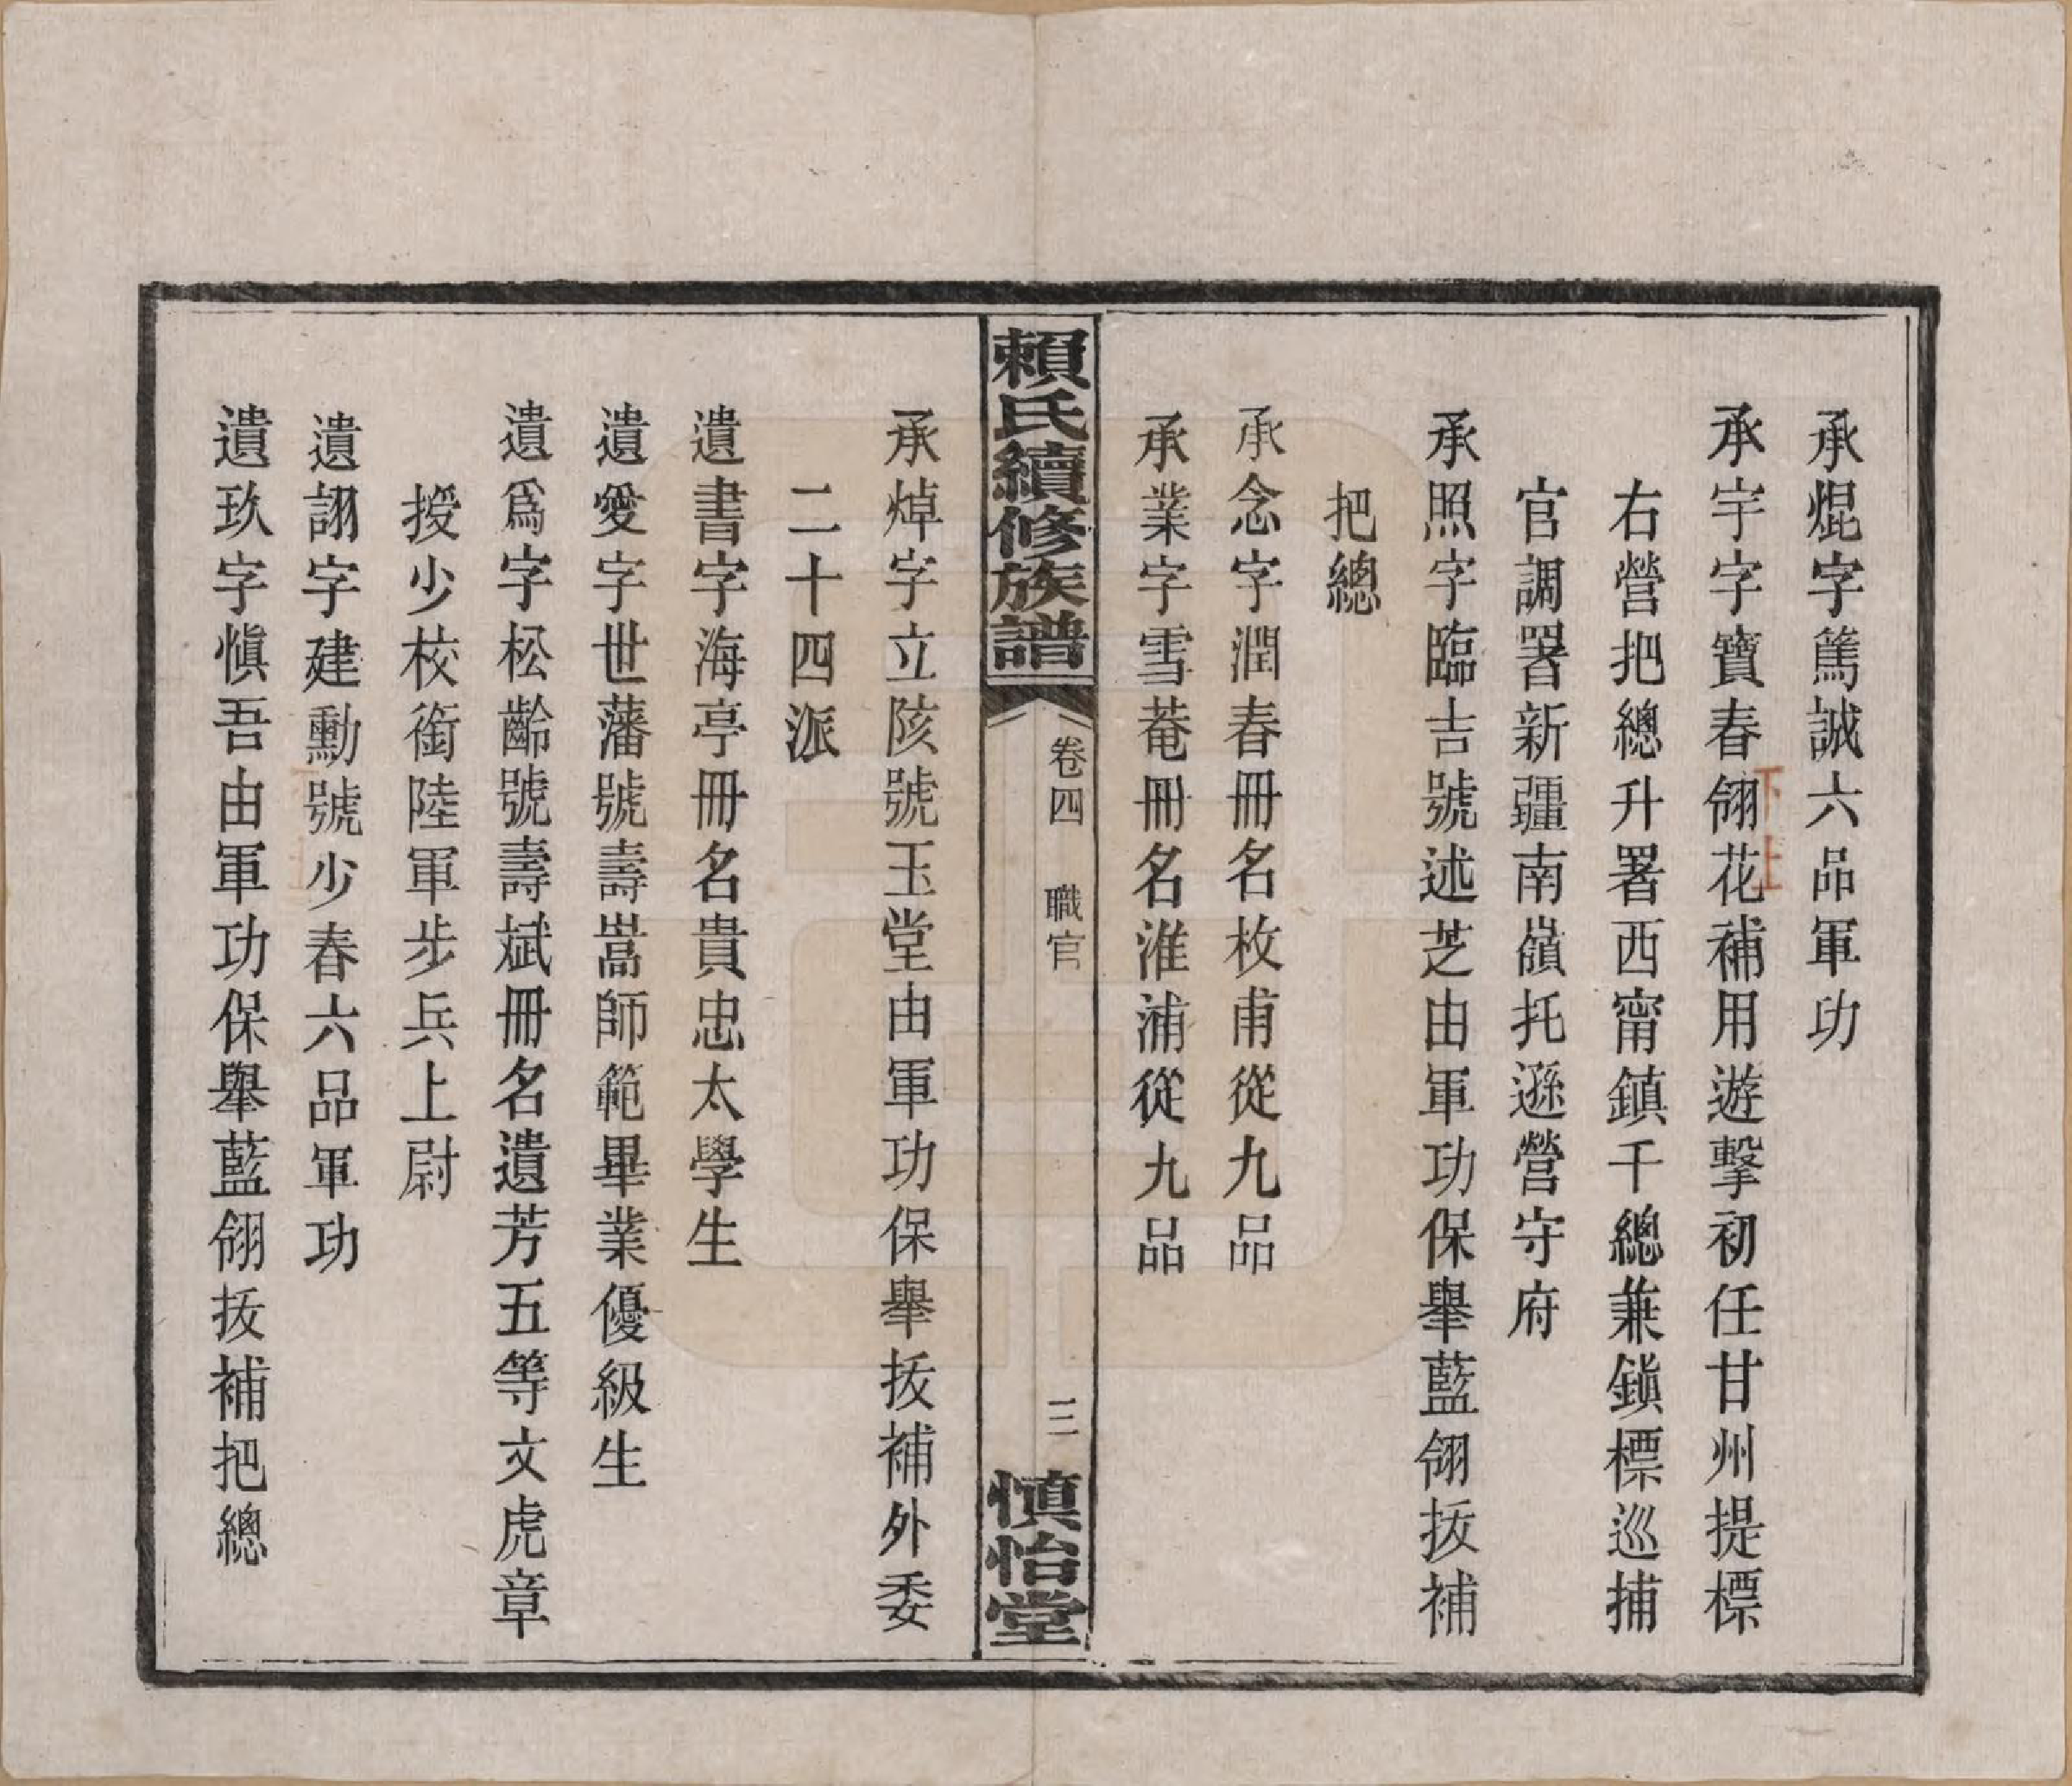 承焜字篤誠六品軍功
承宇字寶春翎花補用遊擊初任甘州提標
右營把總升署西甯鎮千總兼鎮標巡捕
官調署新疆南嶺托遜營守府
承照字臨吉號述芝由軍功保舉藍翎拔補
把總
承念字潤春冊名枚甫從九品
承業字雪菴冊名淮浦從九品
賴氏續修族譜
卷四 職官
三
慎怡堂
承焯字立陔號玉堂由軍功保舉拔補外委
二十四派
遺書字海亭冊名貴忠太學生
遺愛字世藩號壽嵩師範畢業優級生
遺為字松齡號壽斌冊名遺芳五等文虎章
授少校銜陸軍步兵上尉
遺詡字建勳號少春六品軍功
遺玖字慎吾由軍功保舉藍翎拔補把總